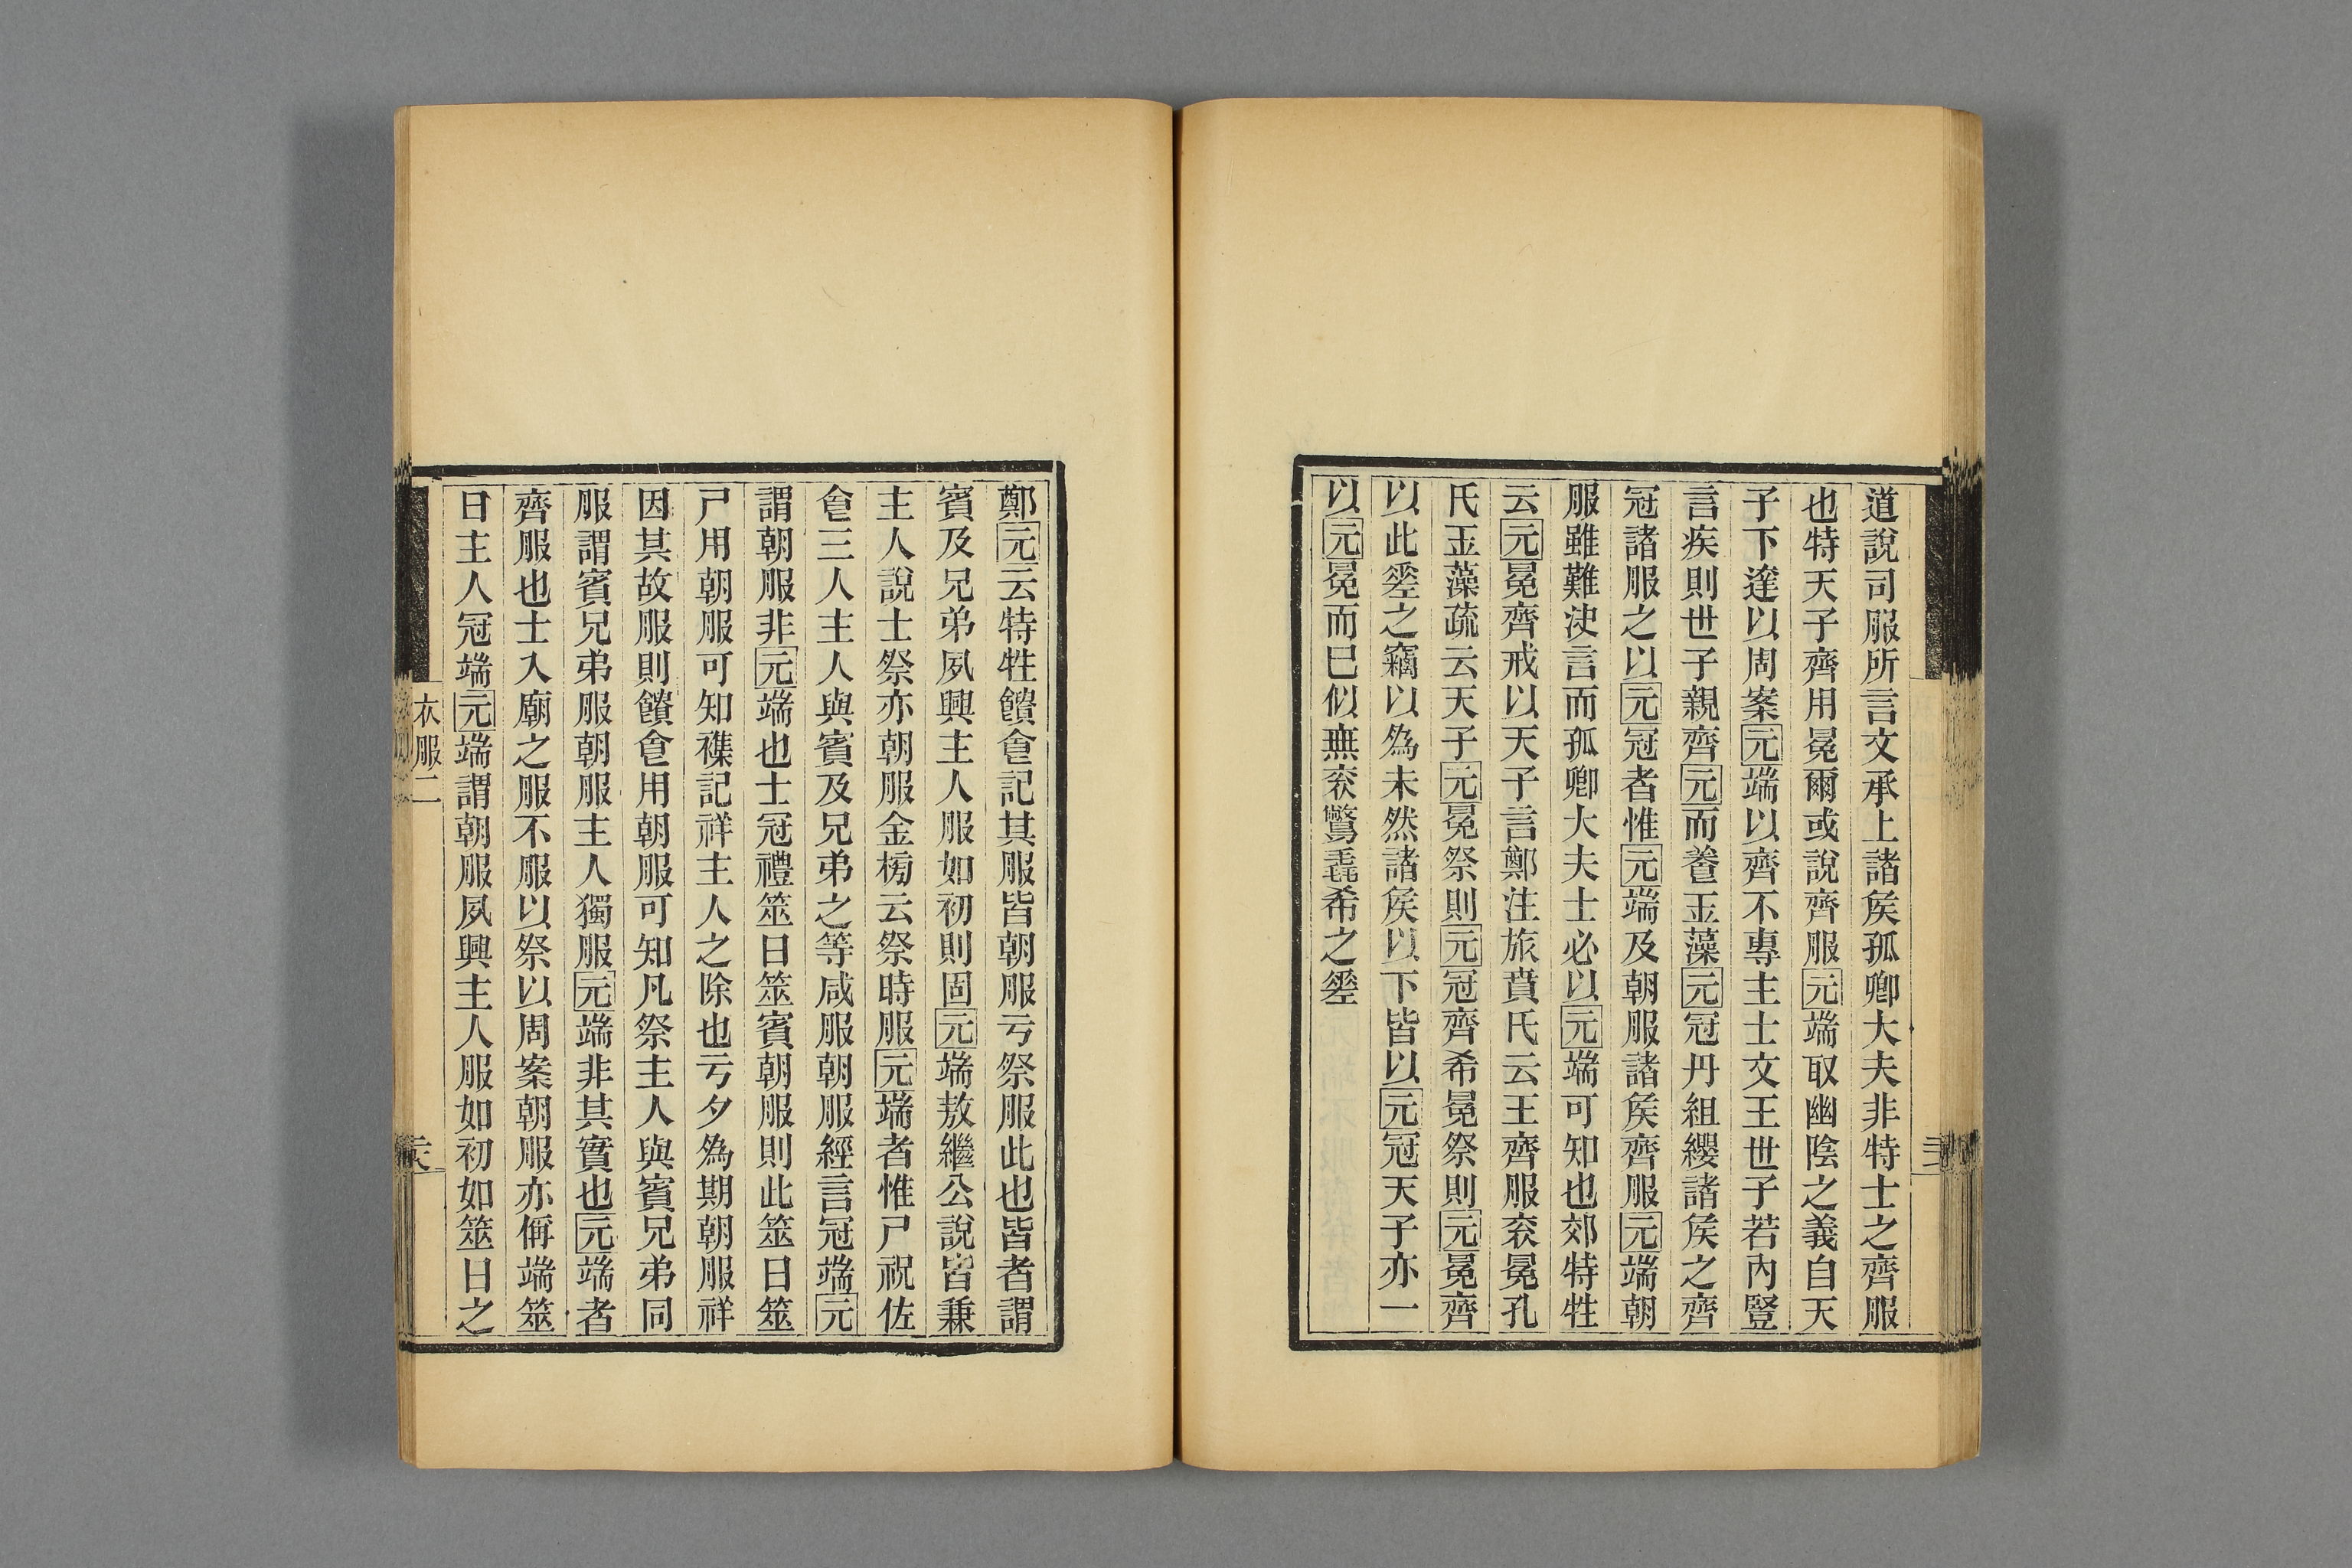 道說司服所言文承上諸矦孤卿大夫非特士之齊服
也特天子齊用冕爾或說齊服元端取幽陰之義自天
子下達以周案元端以齊不專主士文王世子若內豎
言疾則世子親齊元而養玉藻元冠丹組纓諸矦之齊
冠諸服之以元冠者惟元端及朝服諸矦齊服元端朝
服雖難決言而孤卿大夫士必以元端可知也郊特牲
云元冕齊戒以天子言鄭注旅賁氏云王齊服衮冕孔
氏玉藻疏云天子元冕祭則元冠齊希冕祭則元冕齊
以此差之竊以為未然諸矦以下皆以元冠天子亦一
以元冕而已似無衮鷩毳希之差
鄭元云特牲饋食記其服皆朝服亏祭服此也皆者謂
賓及兄弟夙興主人服如初則固元端敖繼公說皆兼
主人說士祭亦朝服金榜云祭時服元端者惟尸祝佐
食三人主人與賓及兄弟之等咸服朝服經言冠端元
謂朝服非元端也士冠禮筮日筮賓朝服則此筮日筮
尸用朝服可知襍記祥主人之除也亏夕為期朝服祥
因其故服則饋食用朝服可知凡祭主人與賓兄弟同
服謂賓兄弟服朝服主人獨服元端非其實也元端者
齊服也士入廟之服不服以祭以周案朝服亦偁端筮
日主人冠端元端謂朝服夙興主人服如初如筮日之
衣服二